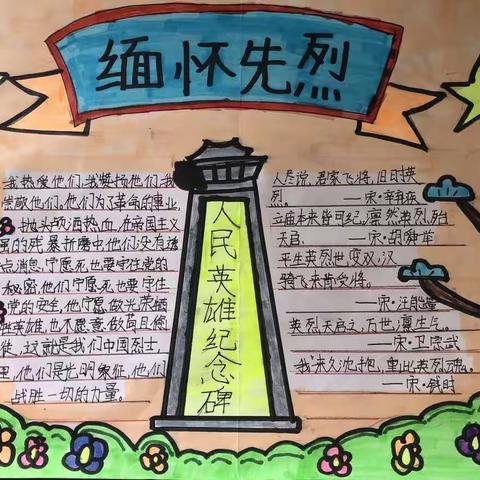 缅怀先烈
我热爱他们,我赞扬他们,我
崇敬他们,他们为了革命的事业,
抛头颅洒热血,在帝国主义
的残暴折磨中他们没有透
点消息,宁愿死也要守住党的
秘密,他们宁愿死也要守住
党的安全,他们宁愿做光荣牺
牲英雄,也不愿意做苟且偷
徒,这就是我们中国烈士
里,他们是光明象征,他们
战胜一切的力量。
人民英雄纪念碑
人尽说,君家飞将,旧日英
烈。
——宋·辛弃疾
立庙本来皆可纪,凛然英烈胎
天官。 ——宋·胡舜举
平生英烈世无双,汉
骑飞来肯受降。
——宋·汪能量
英烈天启之,万世凛生气。
——宋·卫宗武
我来久沈抱,重此英烈魂。
——宋·钱时